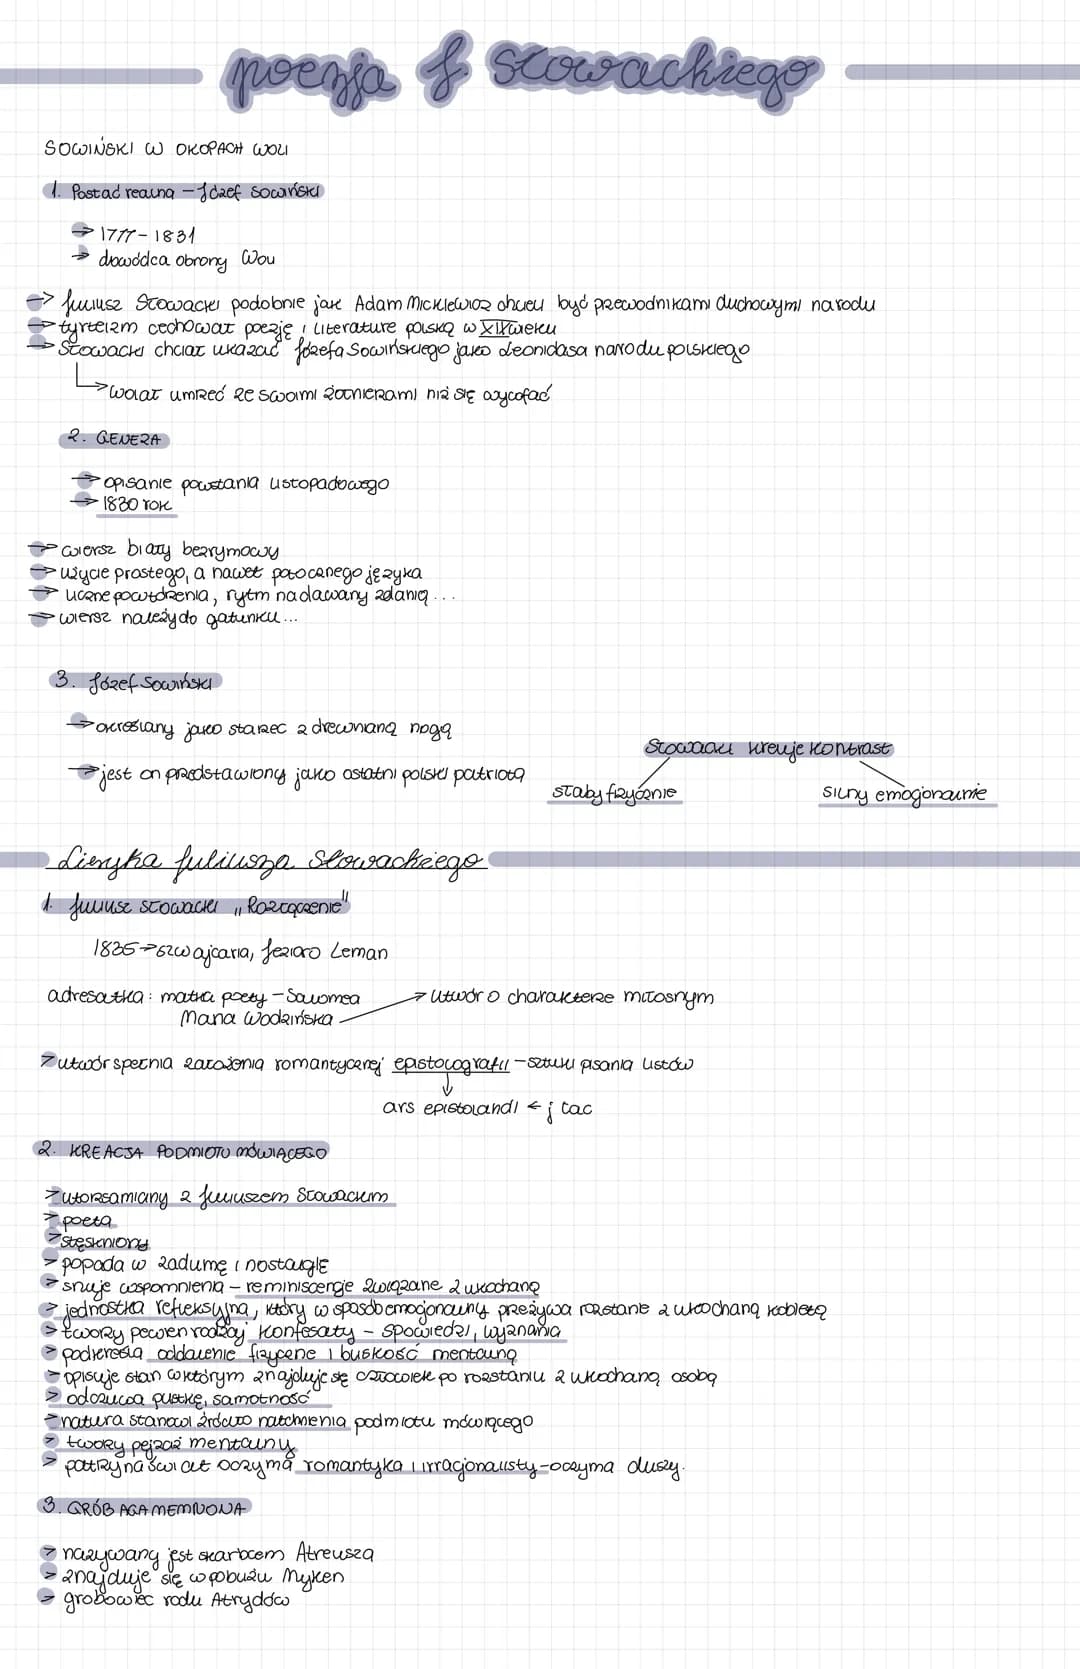 poezja J. Słowackiego
SOWIŃSKI W OKOPACH WOLI
1. Postać realna - Józef Sowiński
→ 1777 - 1831
→ dowódca obrony Woli
→ Juliusz Słowacki podobnie jak Adam Mickiewicz chcieli być przewodnikami duchowymi narodu
→ tyrteizm cechował poezję i literaturę polską w XIX wieku
→ Słowacki chciał ukazać Józefa Sowińskiego jako Leonidasa narodu polskiego
→ wolał umrzeć ze swoimi żołnierzami niż się wycofać
2. GENEZA
→ opisanie powstania listopadowego
→ 1830 rok
→ wiersz biały bezrymowy
→ użycie prostego, a nawet potocznego języka
→ liczne powtórzenia, rytm nadawany zdanią...
→ wiersz należy do gatunku...
3. Józef Sowiński
→ określany jako starzec z drewnianą nogą
→ jest on przedstawiony jako ostatni polski patriota
Słowacki kreuje kontrast
słaby fizycznie silny emocjonalnie
Liryka Juliusza Słowackiego
1. Juliusz Słowacki „Rozłączenie"
1835 → Szwajcaria, Jezioro Leman
adresatka: matka poety - Salomea → utwór o charakterze miłosnym
Maria Wodzińska
> utwór spełnia założenia romantycznej epistolografii - sztuki pisania listów
ars epistolandi ← j łac
2. KREACJA PODMIOTU MÓWIĄCEGO
> utożsamiany z Juliuszem Słowackim
> poeta
> stęskniony
> popada w zadumę i nostalgię
> snuje wspomnienia - reminiscencje związane z ukochaną
> jednostka refleksyjna, który w sposób emocjonalny przeżywa rozstanie z ukochaną kobietą
> tworzy pewien rodzaj konfesaty - spowiedzi, wyznania
> podkreśla oddalenie fizyczne i bliskość mentalną
> opisuje stan w którym znajduje się człowiek po rozstaniu z ukochaną osobą
> odczuwa pustkę, samotność
> natura stanowi źródło natchnienia podmiotu mówiącego
> tworzy pejzaż mentalny
> patrzy na świat oczyma romantyka i irracjonalisty - oczyma duszy.
3. GRÓB AGAMEMNONA
> nazywany jest skarbcem Atreusza
> znajduje się w pobliżu Myken
> grobowiec rodu Atrydów